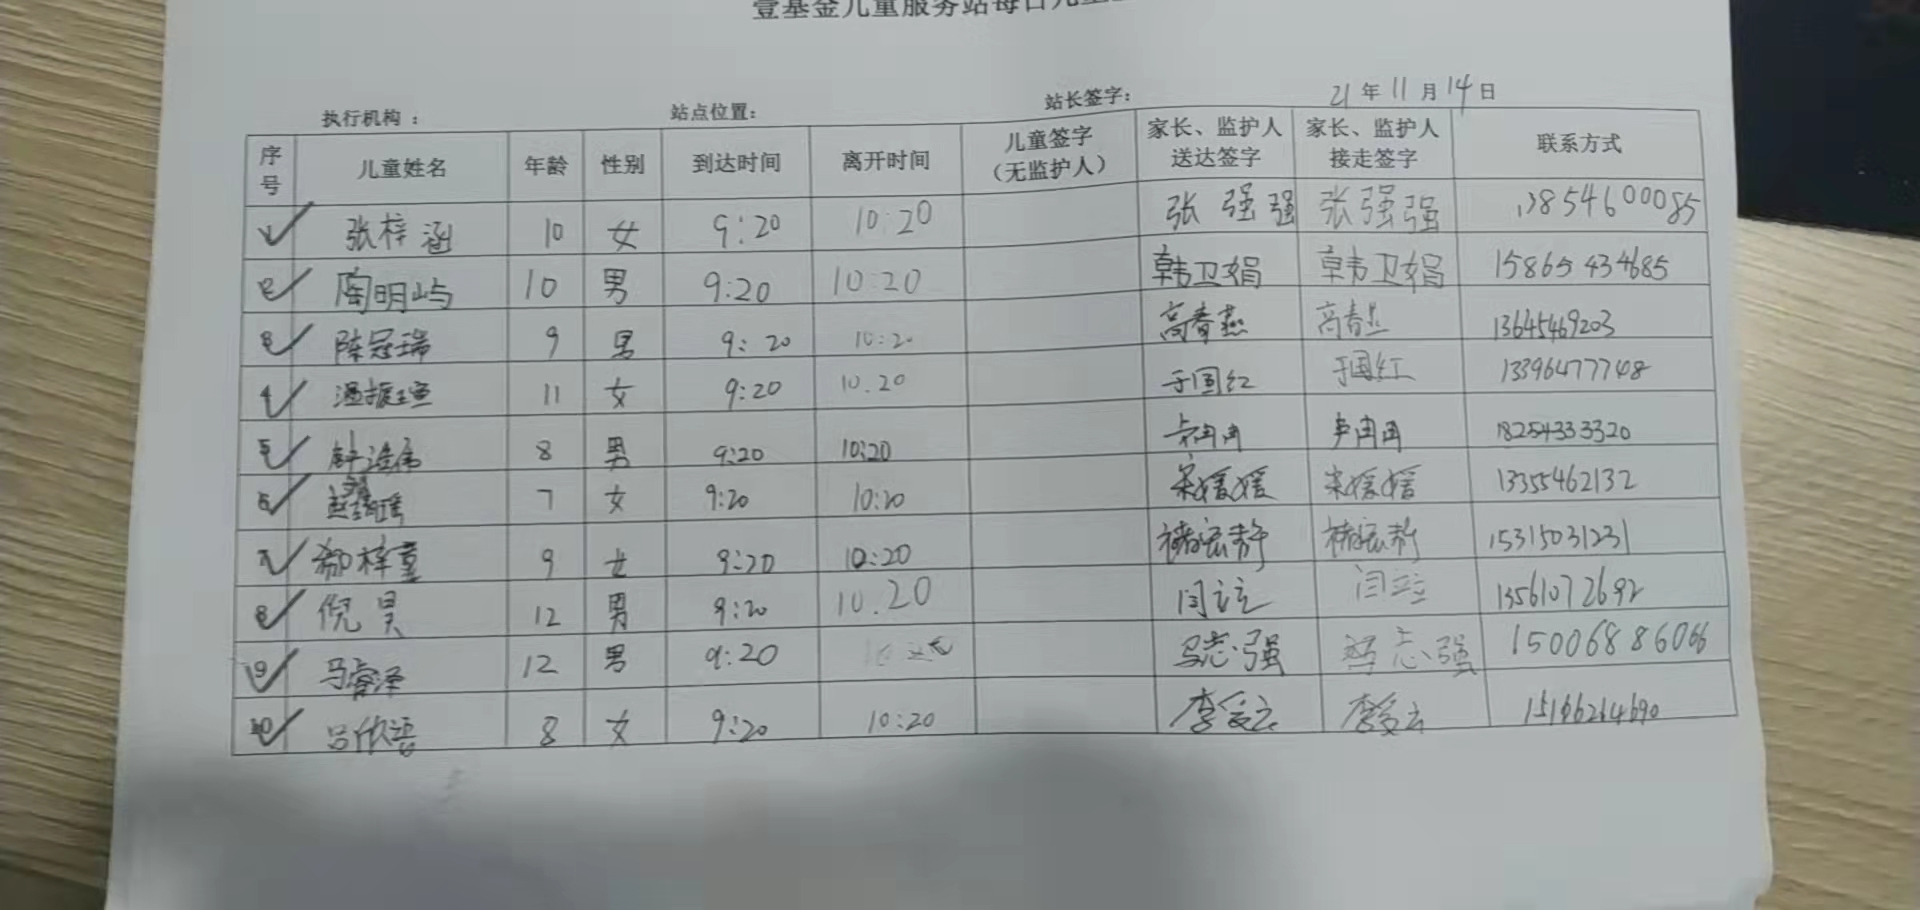 壹基金儿童服务站每日儿童
执行机构： 站点位置： 站长签字： 21年11月14日
序号 儿童姓名 年龄 性别 到达时间 离开时间 儿童签字（无监护人） 家长、监护人送达签字 家长、监护人接走签字 联系方式
1 张梓涵 10 女 9:20 10:20 张强强 张强强 13854600085
2 陶明屿 10 男 9:20 10:20 韩卫娟 韩卫娟 15865434685
3 陈冠瑞 9 男 9:20 10:20 高春燕 高春 13645469203
4 11 女 9:20 10.20 于国红 于国红 13396477748
5 8 男 9:20 10:20 冉冉 卢冉冉 18254333320
6 赵 7 女 9:20 10:20 宋媛媛 宋媛媛 13355462132
7 梓童 9 女 9:20 10:20 褚宏静 褚宏静 15315031231
8 倪昊 12 男 9:20 10.20 闫 闫 13561072692
9 马睿泽 12 男 9:20 马志强 志强 15006886066
10 吕欣语 8 女 9:20 10:20 李爱云 李爱云 15166264690